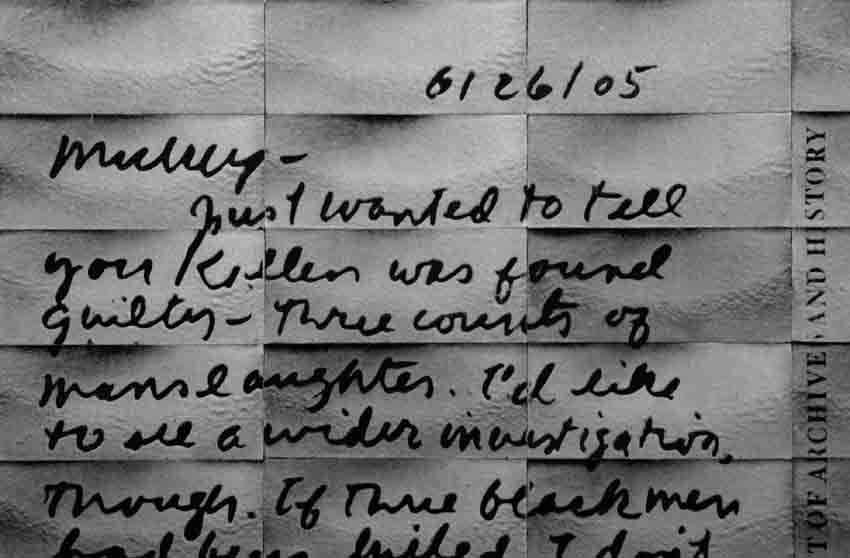 6/26/05
Mickey-
Just wanted to tell
you Killen was found
guilty- three counts of
manslaughter. I'd like
to see a wider investigation,
though. If three black men
had been killed I don't
T OF ARCHIVES AND HISTORY